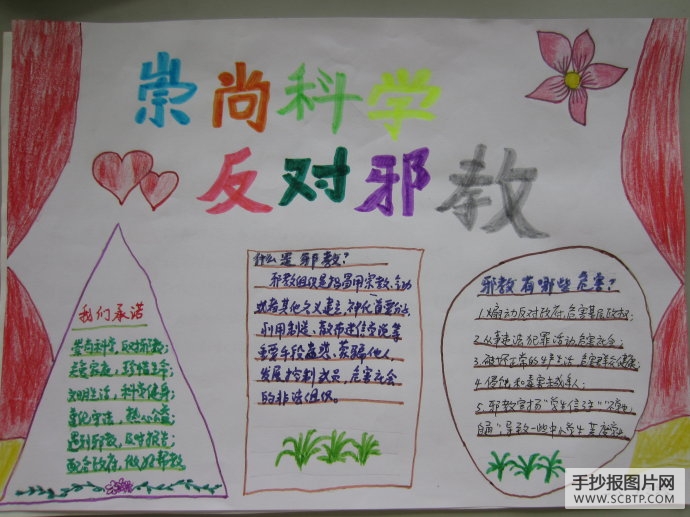 崇尚科学
反对邪教
我们承诺
崇尚科学,反对邪教;
关爱家庭,珍惜生命;
文明生活,科学健身;
遵纪守法,热心公益;
遇到邪教,及时报告;
配合政府,做好帮教
什么是邪教?
邪教组织是指冒用宗教、气功
或者其他名义建立,神化首要分子,
利用制造、散布迷信邪说等
手段蛊惑、蒙骗他人,
发展控制成员,危害社会
的非法组织。
邪教有哪些危害?
1.煽动反对政府,危害基层政权;
2.从事违法犯罪活动危害社会;
3.破坏正常的生产生活,危害身心健康;
4.侵蚀和毒害未成年人;
5.邪教宣扬
手抄报图片网
WWW.SCBTP.COM